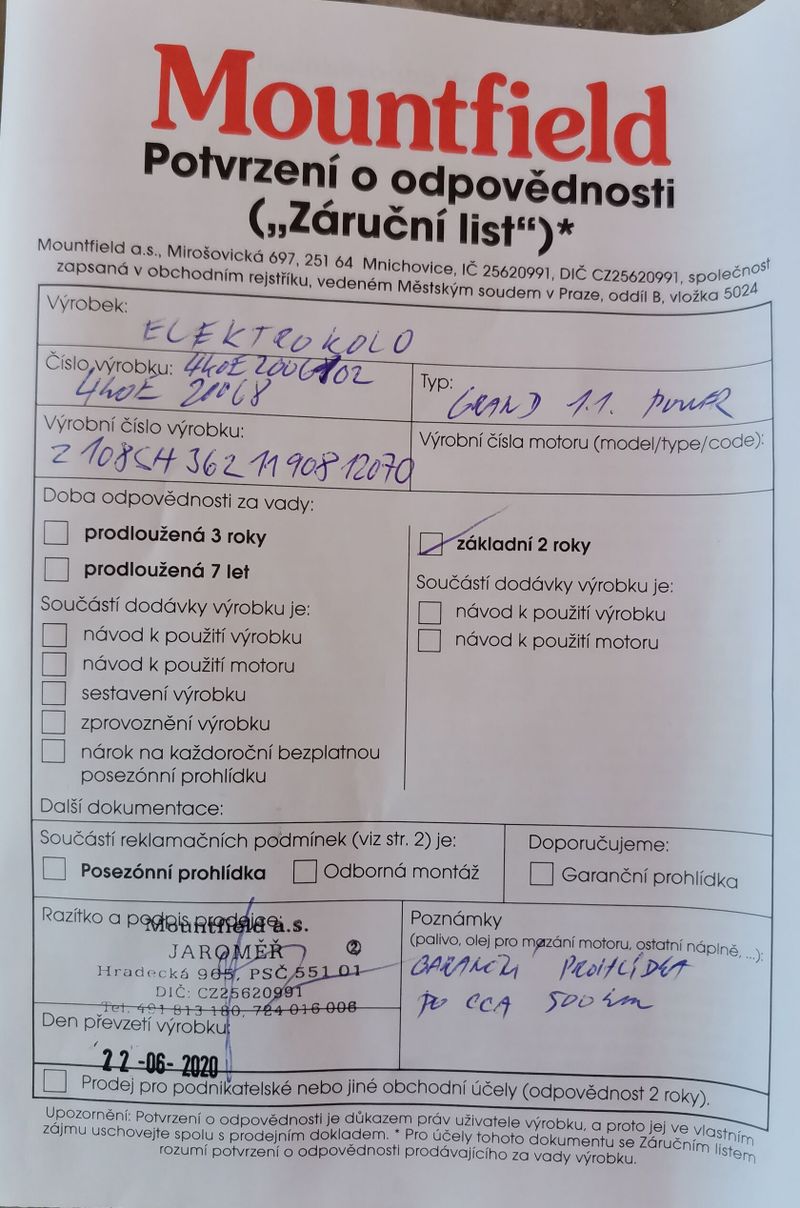 Mountfield
Potvrzení o odpovědnosti
(„Záruční list“)*
Mountfield a.s., Mirošovická 697, 251 64 Mnichovice, IČ 25620991, DIČ CZ25620991, společnost
zapsaná v obchodním rejstříku, vedeném Městským soudem v Praze, oddíl B, vložka 5024
Výrobek:
ELEKTROKOLO
Číslo výrobku:
4KOE 20068
Typ:
GRAND 1.1. POWER
Výrobní číslo výrobku:
Výrobní čísla motoru (model/type/code):
Doba odpovědnosti za vady:
prodloužená 3 roky
prodloužená 7 let
Součástí dodávky výrobku je:
návod k použití výrobku
návod k použití motoru
sestavení výrobku
zprovoznění výrobku
nárok na každoroční bezplatnou
posezónní prohlídku
základní 2 roky
Součástí dodávky výrobku je:
návod k použití výrobku
návod k použití motoru
Další dokumentace:
Součástí reklamačních podmínek (viz str. 2) je:
Posezónní prohlídka
Odborná montáž
Doporučujeme:
Garanční prohlídka
Razítko a podpis prodejce:
Mountfield a.s.
JAROMĚŘ 2
Hradecká 965, PSČ 551 01
DIČ: CZ25620991
Tel. 491 813 180, 724 016 006
Den převzetí výrobku:
22-06-2020
Poznámky
(palivo, olej pro mazání motoru, ostatní náplně, ...):
GARANČNÍ PROHLÍDKA
PO CCA 500 km
Prodej pro podnikatelské nebo jiné obchodní účely (odpovědnost 2 roky).
Upozornění: Potvrzení o odpovědnosti je důkazem práv uživatele výrobku, a proto jej ve vlastním
zájmu uschovejte spolu s prodejním dokladem. * Pro účely tohoto dokumentu se Záručním listem
rozumí potvrzení o odpovědnosti prodávajícího za vady výrobku.